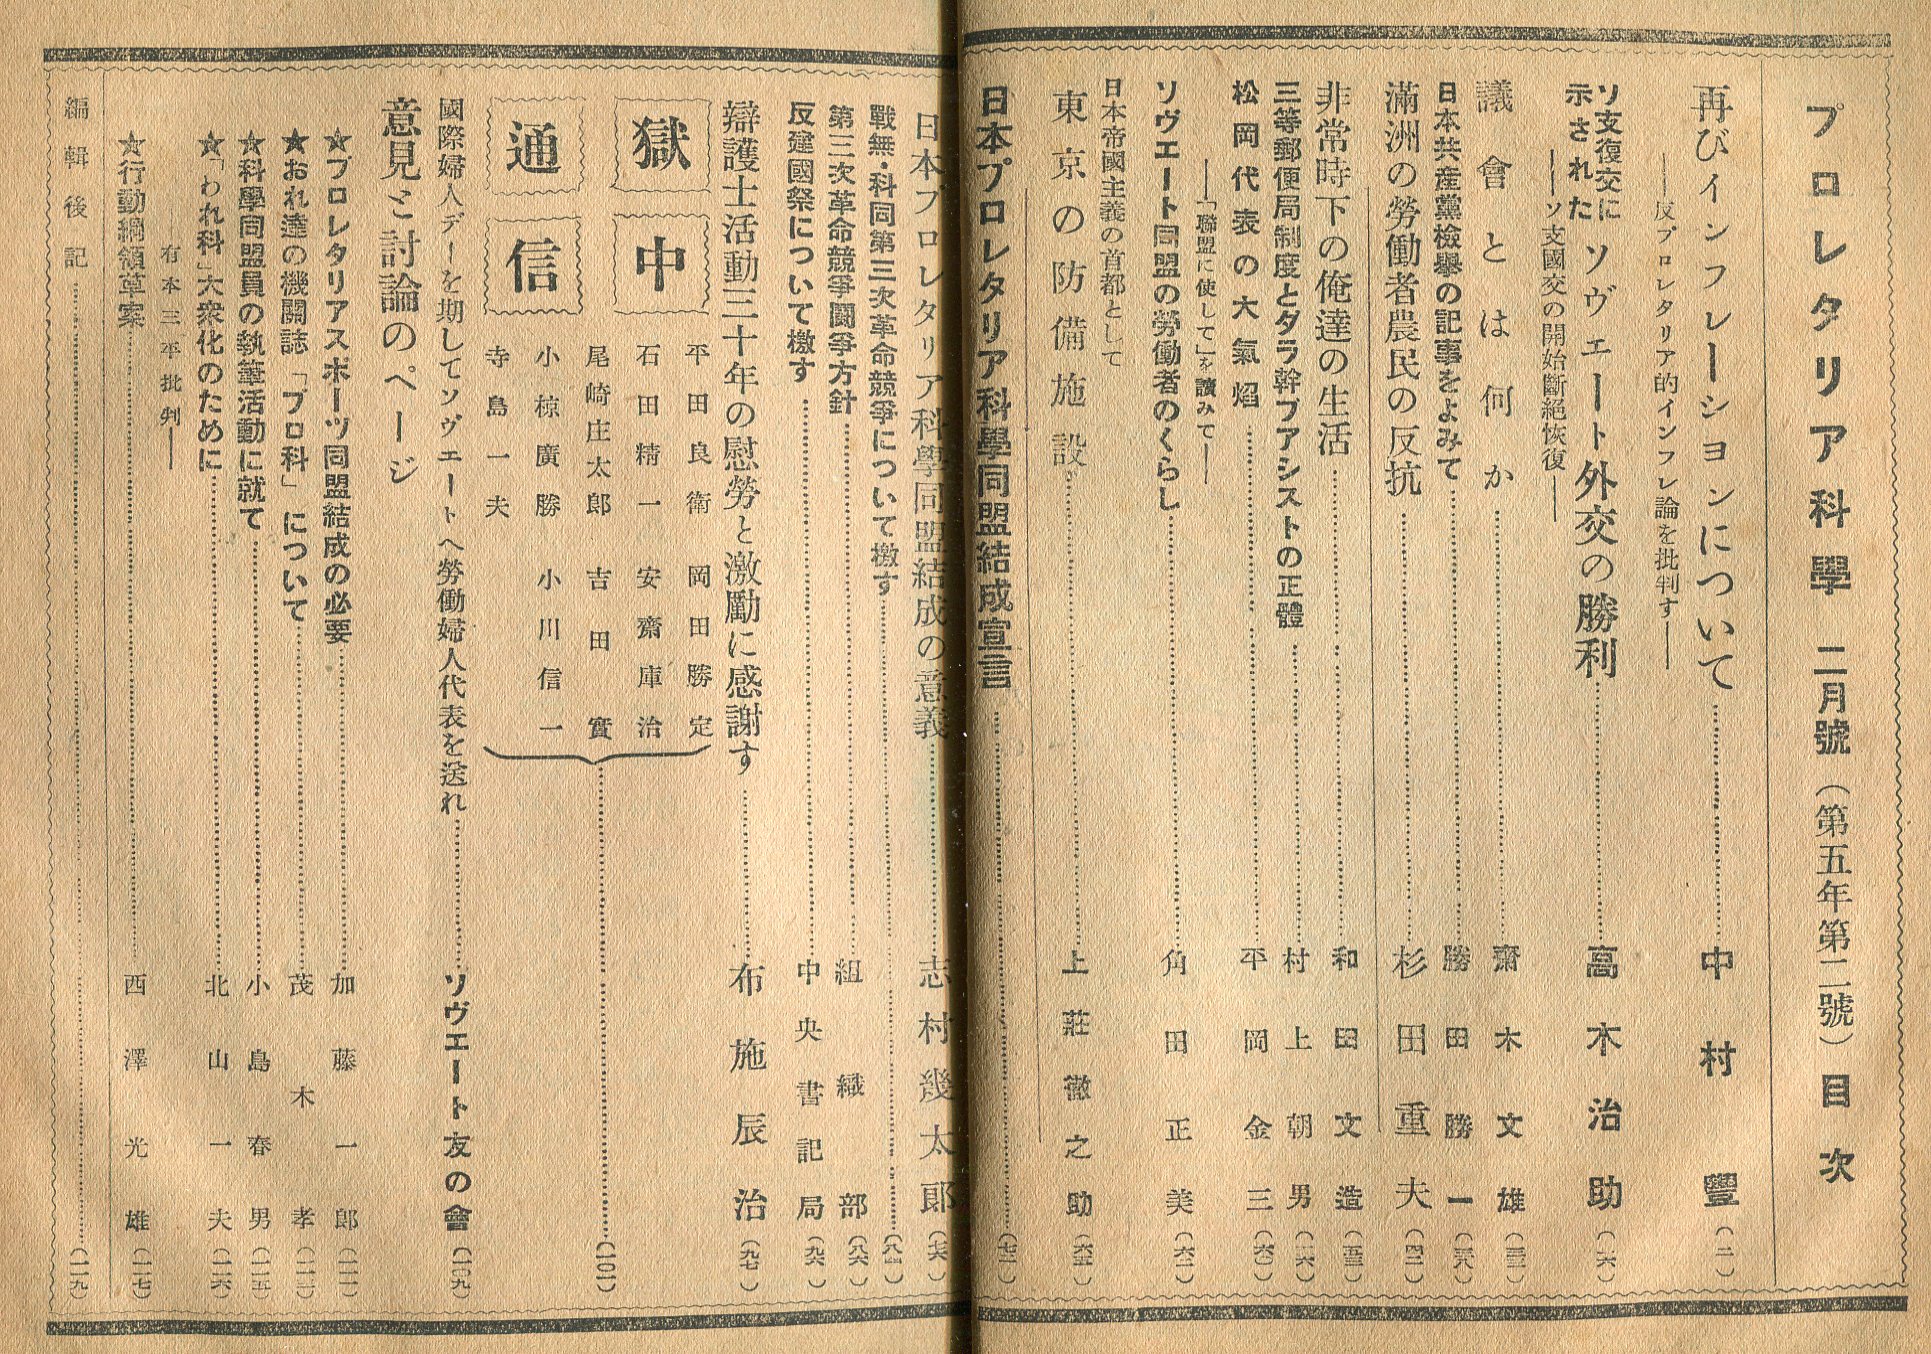 プロレタリア科學 二月號（第五年第二號）目次
再びインフレーションについて……中村豐（二）
――反プロレタリア的インフレ論を批判す――
ソ支復交に示された ソヴェート外交の勝利……高木治助（一六）
――ソ支國交の開始斷絕恢復――
議會とは何か……齋木文雄（三三）
日本共産黨檢擧の記事をよみて……勝田勝一（三八）
滿洲の勞働者農民の反抗……杉田重夫（四二）
非常時下の俺達の生活……和田文造（五三）
三等郵便局制度とダラ幹フアシストの正體……村上朝男
松岡代表の大氣焰……平岡金三
――「聯盟に使して」を讀みて――
ソヴエート同盟の勞働者のくらし……角田正美（六二）
日本帝國主義の首都として
東京の防備施設……上莊徹之助（六五）
日本プロレタリア科學同盟結成宣言……（七一）
日本プロレタリア科學同盟結成の意義……志村幾太郎（七六）
戰無・科同第三次革命競爭について檄す……
第三次革命競爭鬪爭方針……組織部（八六）
反建國祭について檄す……中央書記局（九六）
辯護士活動三十年の慰勞と激勵に感謝す……布施辰治（九七）
獄中通信
平田良衛 岡田勝定
石田精一 安齋庫治
尾崎庄太郎 吉田實
小椋廣勝 小川信一
寺島一夫
……（一〇一）
國際婦人デーを期してソヴエートへ勞働婦人代表を送れ……ソヴエート友の會（一〇九）
意見と討論のページ
★プロレタリアスポーツ同盟結成の必要……加藤一郎（一一一）
★おれ達の機關誌「プロ科」について……茂木孝（一一三）
★科學同盟員の執筆活動に就て……小島春男（一一五）
★「われ科」大衆化のために……北山一夫（一一六）
――有本三平批判――
★行動綱領草案……西澤光雄（一一七）
編輯後記……（一一九）